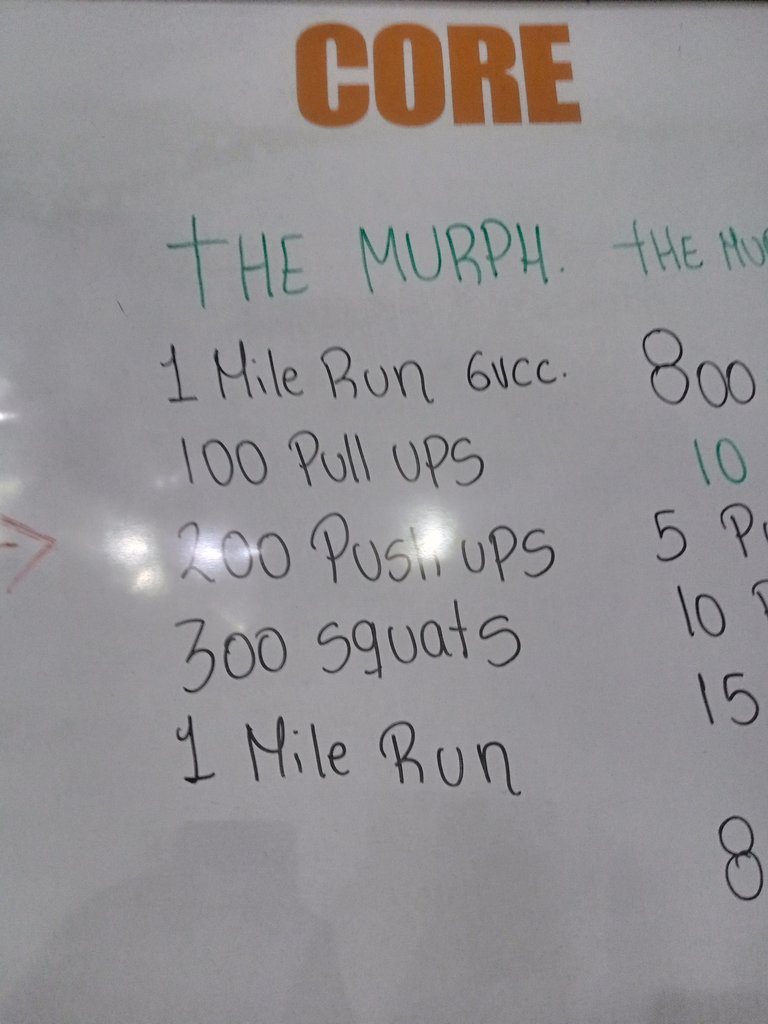 CORE
THE MURPH.
1 Mile Run 6vcc.
100 Pull UPS
200 Push UPS
300 Squats
1 Mile Run
THE MUR
800
10
5 Pu
10 P
15
8